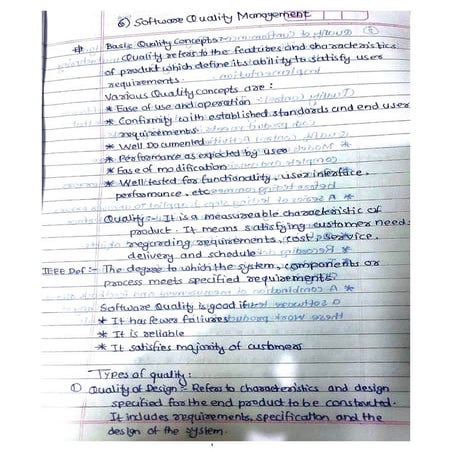 6) Software Quality Management
# Basic Quality Concepts:-
Quality refers to the features and characteristics
of product which define its ability to satisfy user
requirements.
Various Quality concepts are :
* Ease of use and operation
* Confirmity with established standards and end user
requirements
* Well Documented
* Performance as expected by user
* Ease of modification
* Well tested for functionality, user interface,
performance, etc
Quality:- It is a measureable characteristic of
product. It means satisfying customer needs
regarding requirements, cost, service,
delivery and schedule
IEEE Def:- The degree to which the system, components or
process meets specified requirements
Software Quality is good if
* It has fewer failures
* It is reliable
* It satisfies majority of customers
Types of quality:
① Quality of Design:- Refers to characteristics and design
specified for the end product to be constructed.
It includes requirements, specification and the
design of the system.